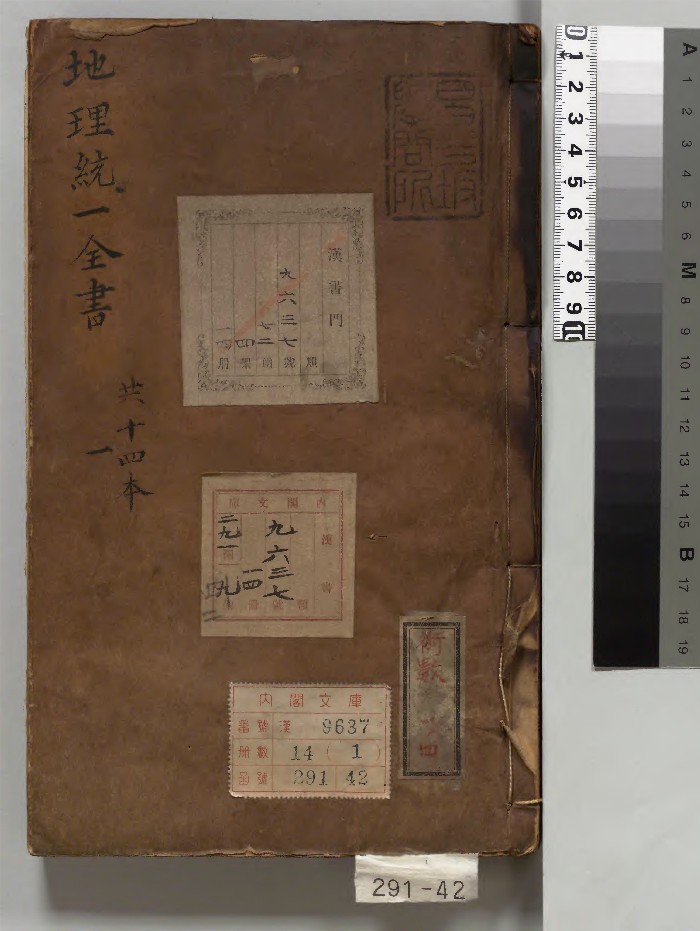 地理統一全書
共十四本
一
漢書門
類
九六三七號
七二函
四架
一四冊
內閣文庫
漢書
九六三七
一四
二九一
術數
內閣文庫
番號 漢 9637
冊數 14 ( 1 )
函號 291 42
291-42
0 1 2 3 4 5 6 7 8 9 10
A 1 2 3 4 5 6 M 8 9 10 11 12 13 14 15 B 17 18 19